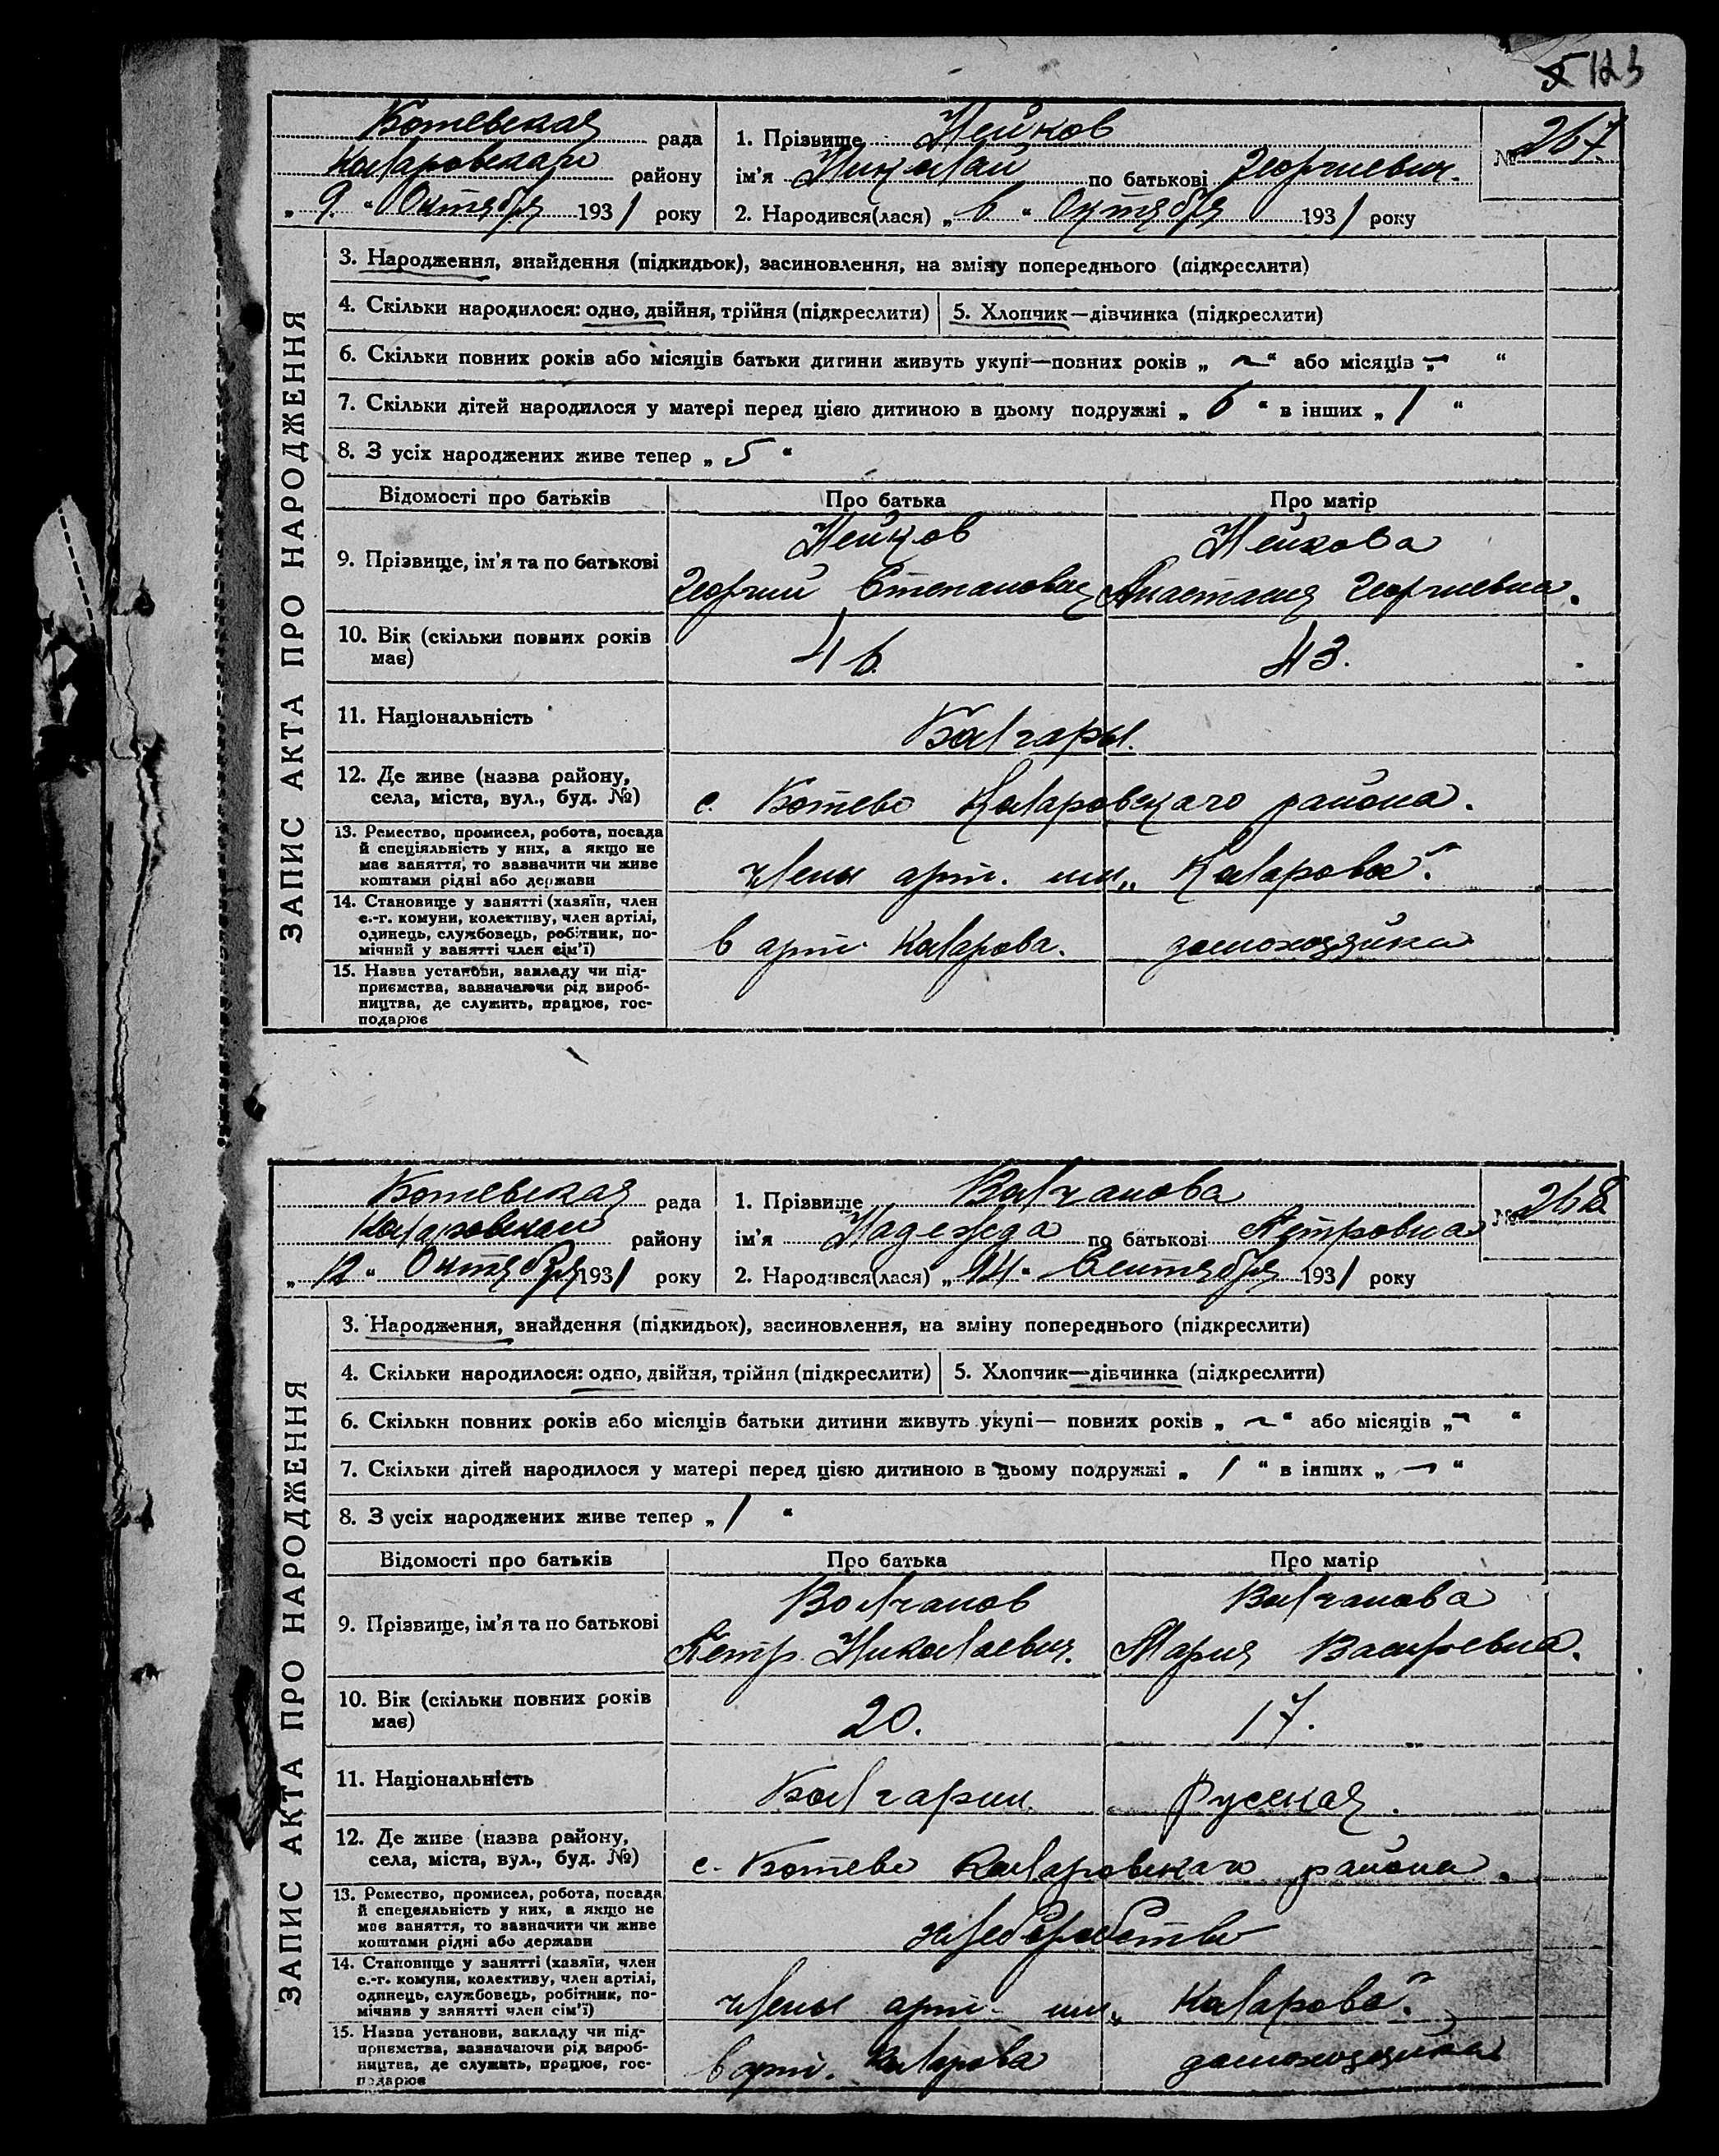 123
Ботевская рада
Коларовского району
„ 9. “ Октября 1931 року
1. Прізвище Нейков
ім'я Николай по батькові Георгиевич.
2. Народився(лася) „ 6 “ Октября 1931 року
№ 267
ЗАПИС АКТА ПРО НАРОДЖЕННЯ
3. Народження, знайдення (підкидьок), засиновлення, на зміну попереднього (підкреслити)
4. Скільки народилося: одно, двійня, трійня (підкреслити)
5. Хлопчик—дівчинка (підкреслити)
6. Скільки повних років або місяців батьки дитини живуть укупі—повних років „ ~ “ або місяців „ – “
7. Скільки дітей народилося у матері перед цією дитиною в цьому подружжі „ 6 “ в інших „ 1 “
8. З усіх народжених живе тепер „ 5 “
Відомості про батьків Про батька Про матір
9. Прізвище, ім'я та по батькові
Нейков Нейкова
Георгий Степанович Анастасия Георгиевна.
10. Вік (скільки повних років
має)
46. 43.
11. Національність
Болгары.
12. Де живе (назва району,
села, міста, вул., буд. №)
с. Ботево Коларовского района.
13. Ремество, промисел, робота, посада
й спеціяльність у них, а якщо не
має заняття, то зазначити чи живе
коштами рідні або держави
члены арт. им. „Коларова“.
14. Становище у занятті (хазяїн, член
с.-г. комуни, колективу, член артілі,
одинець, службовець, робітник, по-
мічний у занятті член сім'ї)
в арт. Коларова. домохозяйка
15. Назва установи, закладу чи під-
приємства, зазначаючи рід вироб-
ництва, де служить, працює, гос-
подарює
Ботевская рада
району
„ 12 “ Октября 1931 року
1. Прізвище Волчанова
ім'я Надежда по батькові Петровна
2. Народився(лася) „ 14 “ Сентября 1931 року
№ 268
ЗАПИС АКТА ПРО НАРОДЖЕННЯ
3. Народження, знайдення (підкидьок), засиновлення, на зміну попереднього (підкреслити)
4. Скільки народилося: одно, двійня, трійня (підкреслити)
5. Хлопчик—дівчинка (підкреслити)
6. Скільки повних років або місяців батьки дитини живуть укупі— повних років „ ~ “ або місяців „ – “
7. Скільки дітей народилося у матері перед цією дитиною в цьому подружжі „ 1 “ в інших „ – “
8. З усіх народжених живе тепер „ 1 “
Відомості про батьків Про батька Про матір
9. Прізвище, ім'я та по батькові
Волчанов Волчанова
Петр Николаевич. Мария Васильевна.
10. Вік (скільки повних років
має)
20. 17.
11. Національність
Болгарин. Русская.
12. Де живе (назва району,
села, міста, вул., буд. №)
с. Ботево Коларовского района.
13. Ремество, промисел, робота, посада
й спецеяльність у них, а якщо не
має заняття, то зазначити чи живе
коштами рідні або держави
хлеборобство
14. Становище у занятті (хазяїн, член
с.-г. комуни, колективу, член артілі,
одинець, службовець, робітник, по-
мічнив у занятті член сім'ї)
члены арт. им. „Коларова“.
15. Назва установи, закладу чи під-
приємства, зазначаючи рід вироб-
ництва, де служить, працює, гос-
подарює
в арт. Коларова домохозяйка